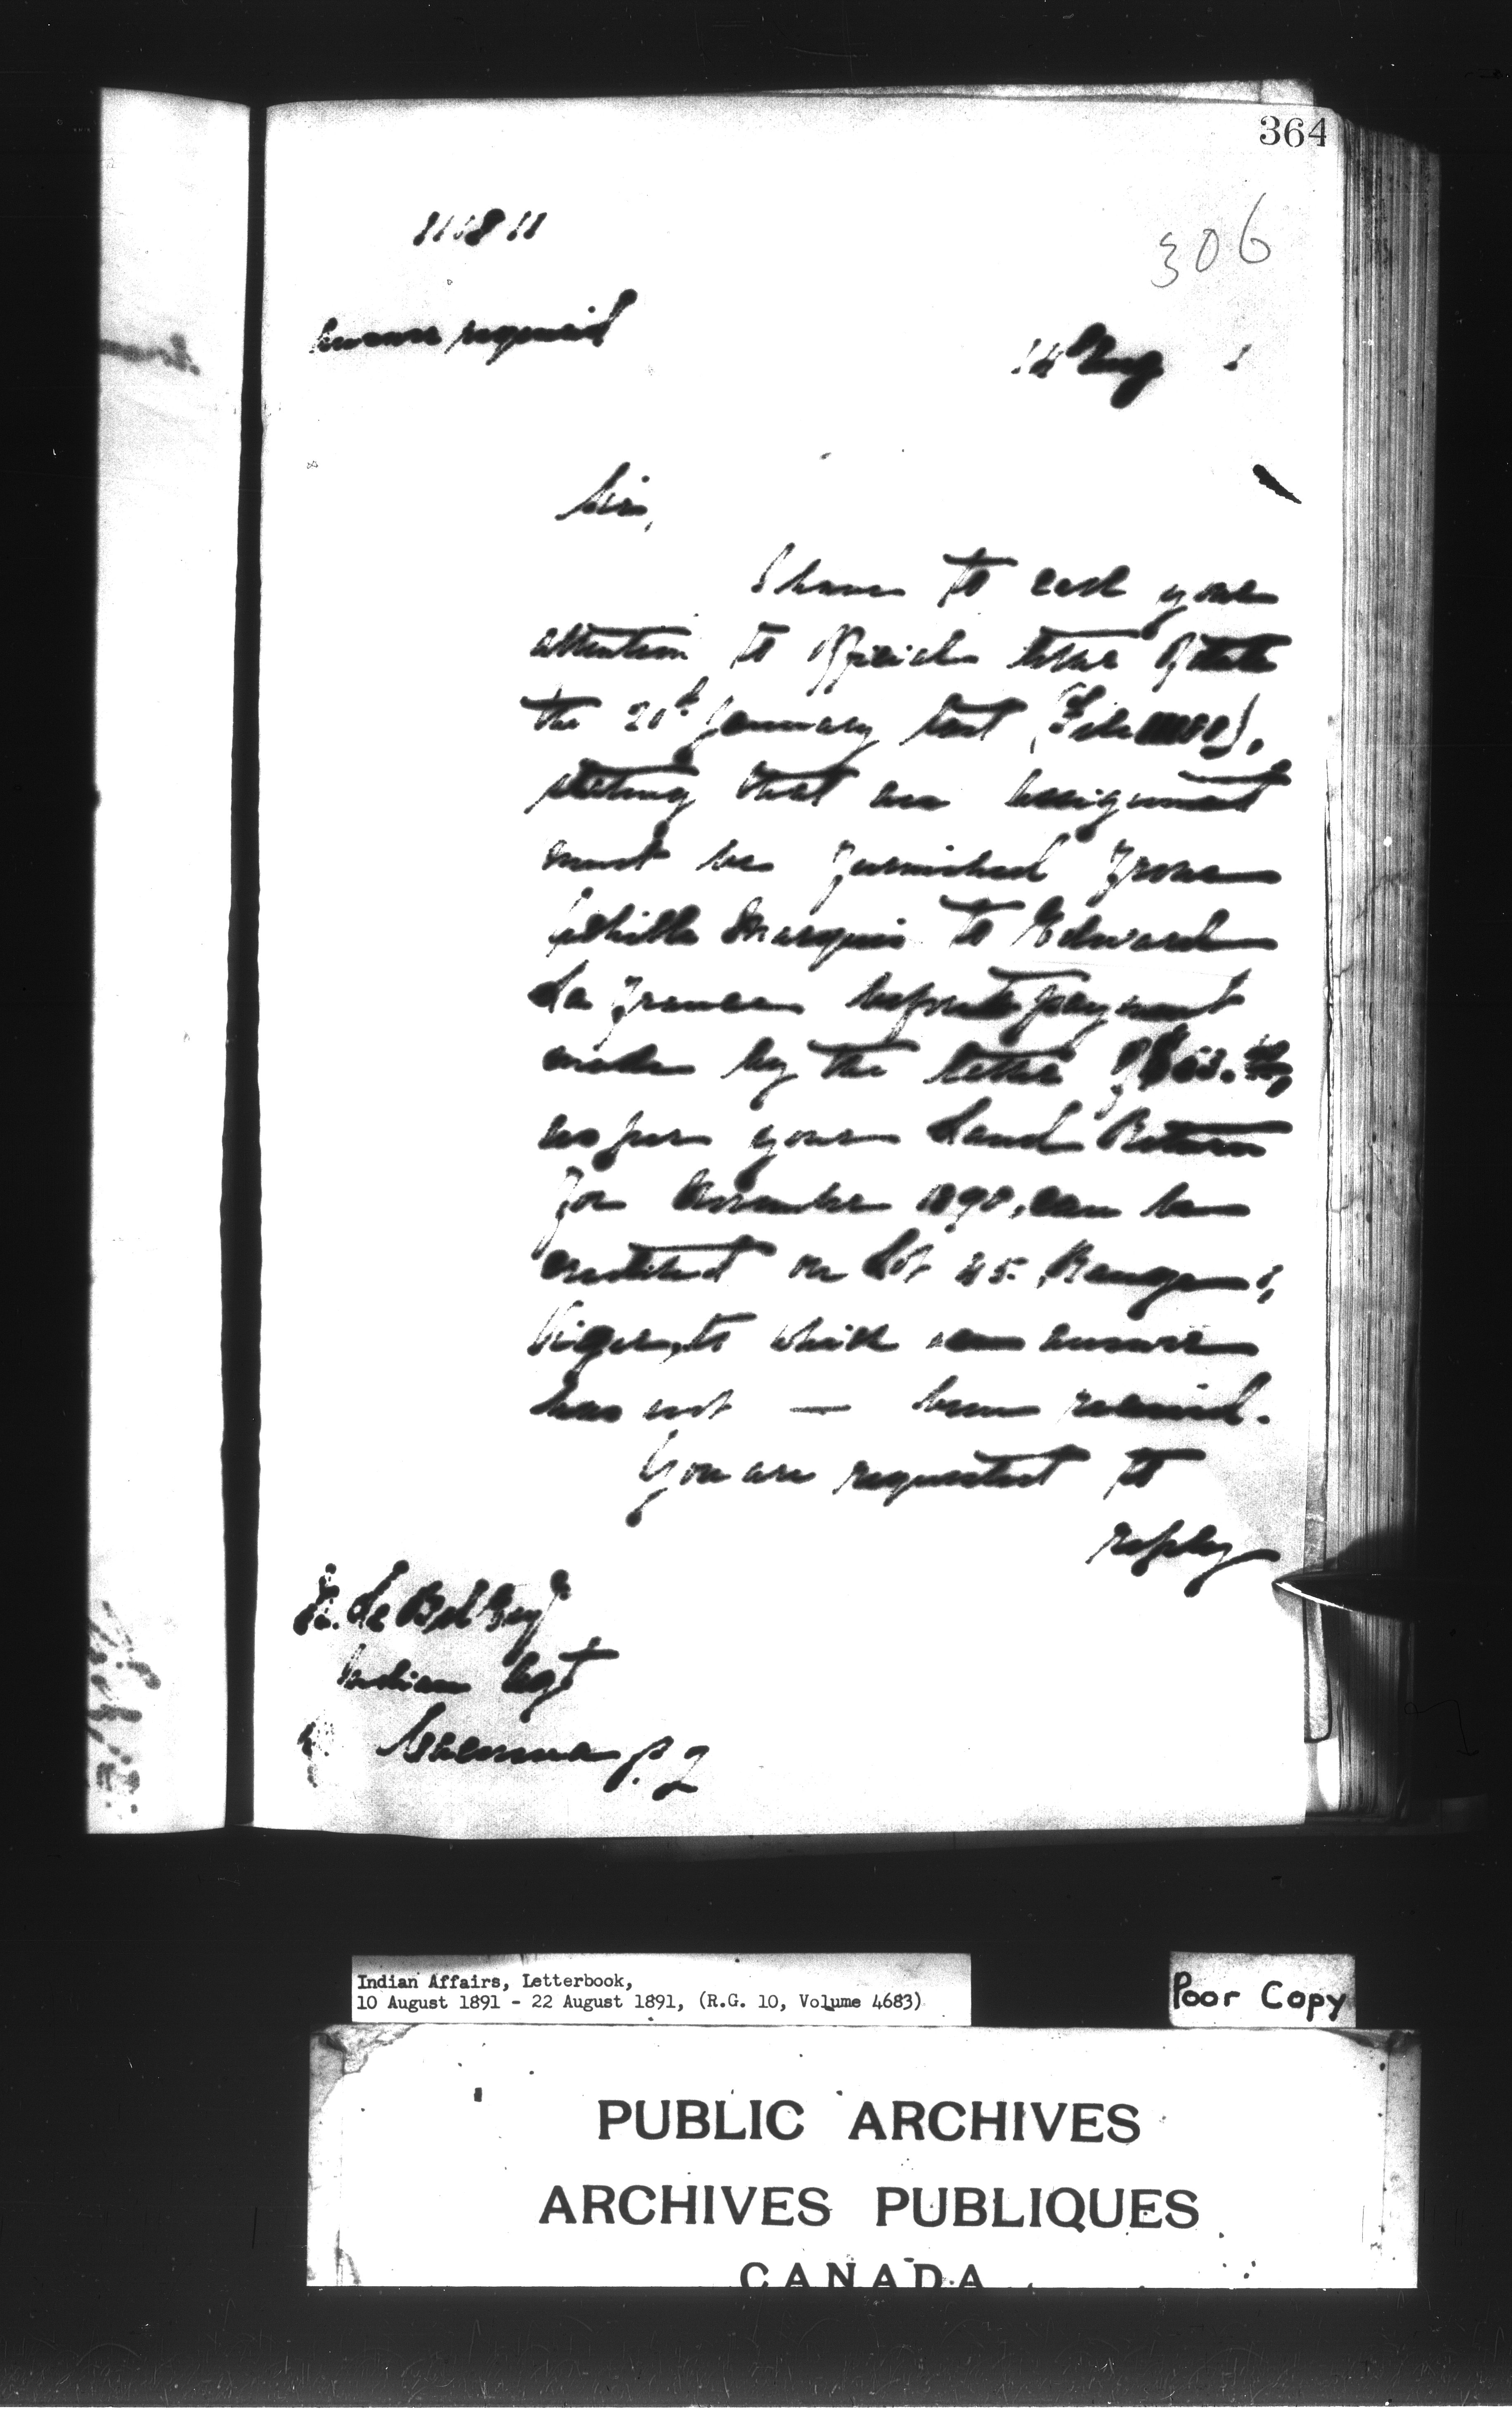 364
306
111811
Answer required
14 Aug 1
Sir,
I have to call your
attention to official letter of date
the 20th January last, (File
stating that an assignment
must be furnished from
Achille Marquis to Edward
La france before payment
made by the latter of $63.
as per your Land Return
for November 1890, can be
credited on Lot 45. Range 1,
Viger, to which an answer
has not — been received.
You are requested to
reply
Le Bel Esqr
Indian Agt
Cacouna P. Q
Indian Affairs, Letterbook,
10 August 1891 - 22 August 1891, (R.G. 10, Volume 4683)
Poor Copy
PUBLIC ARCHIVES
ARCHIVES PUBLIQUES
CANADA